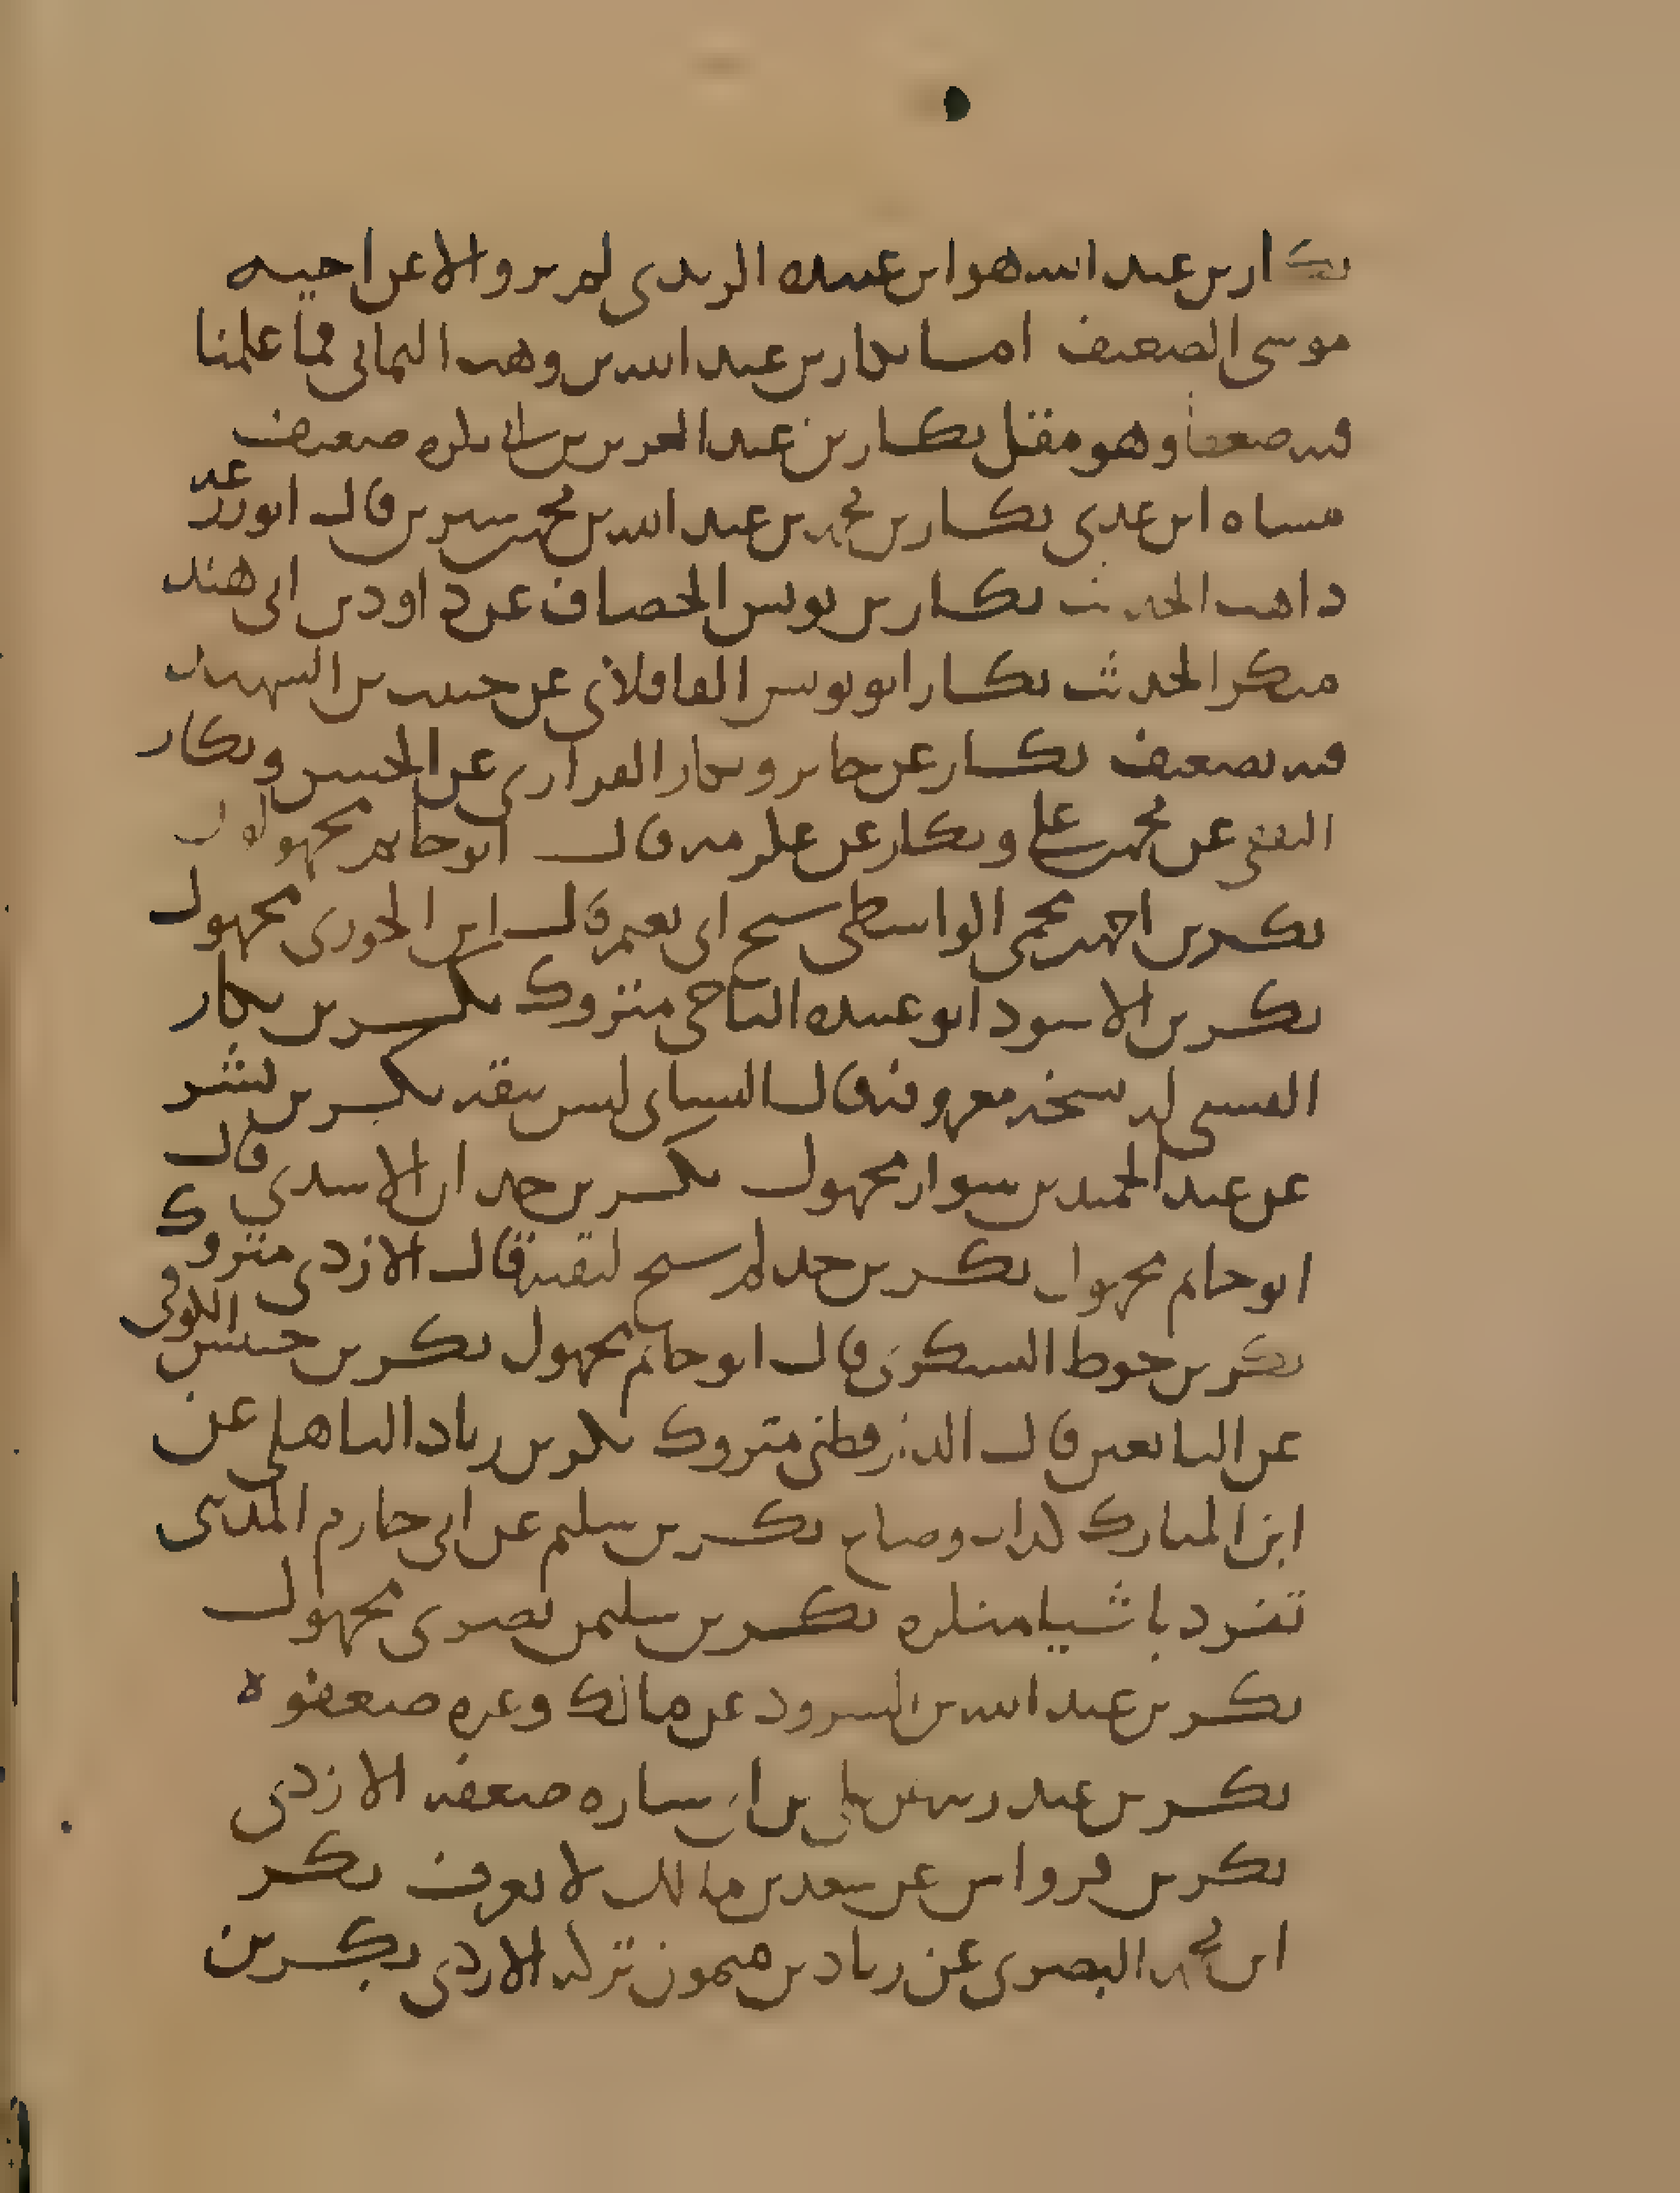 بكار بن عبد الله هو ابن عبيده الربدي لم يرو الا عن اخيه
موسى الضعيف اما بكار بن عبد الله بن وهب اليماني فما علمنا
فيه ضعفا وهو مقل بكار بن عبد العزيز بن ابي بكره ضعيف
مشاه ابن عدي بكار بن محمد بن عبد الله بن محمد بن سيرين قال ابو زرعه
ذاهب الحديث بكار بن يونس الخصاف عن داود بن ابي هند
منكر الحديث بكار ابو يونس القافلاني عن حبيب بن الشهيد
فيه تضعيف بكار عن جابر وبكار الفزاري عن الحسن وبكار
عن محمد بن علي وبكار عن عكرمه قال ابو حاتم مجهولون
بكر بن احمد بن محمي الواسطي شيخ ابي نعيم قال ابن الجوزي مجهول
بكر بن الاسود ابو عبيده الناجي متروك بكر بن بكار
القيسي له نسخه معروفه قال النسائي ليس بثقه بكر بن بشر
عن عبد الحميد بن سوار مجهول بكر بن حدان الاسدي قال
ابو حاتم مجهول بكر بن حذلم شيخ لبقيه قال الازدي متروك
بكر بن حوط اليشكري قال ابو حاتم مجهول بكر بن خنيس الكوفي
عن التابعين قال الدارقطني متروك بكر بن زياد الباهلي عن
ابن المبارك كذاب وضاع بكر بن سليم عن ابي حازم المدني
تفرد باشيا منكره بكر بن سليمن بصري مجهول
بكر بن عبد الله بن الشرود عن مالك وغيره ضعفوه
بكر بن عبد ربه بن ابي ساره ضعفه الازدي
بكر بن قرواش عن سعد بن مالك لا يعرف بكر
ابن محمد البصري عن زياد بن ميمون تركه الازدي بكر بن